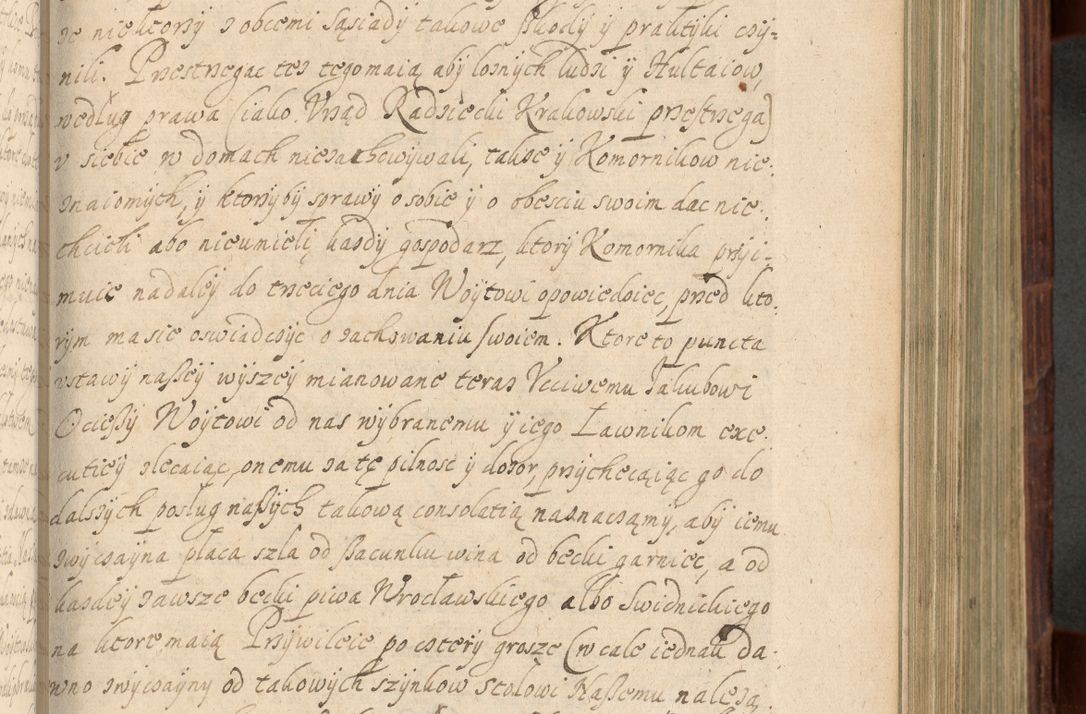 ze niektorzy z obcemi sąsiady takowe szkody ÿ praktyki czÿ=
nili. Przestrzegac tez tego maią, abÿ loznÿch ludzi ÿ Hultaiow,
według prawa (iako Vrząd Radziecki Krakowski przestrzega)
v siebie w domach niezachowÿwali, takze ÿ Komornikow nie:
znaiomÿch, ÿ ktorzÿ bÿ sprawÿ o sobie ÿ o obesciu swoim dac nie:
chcieli abo nieumieli, kazdÿ gospodarz, ktorÿ Komornika przÿi=
muie nadaleÿ do trzeciego dnia Woÿtowi opowiedziec, przed kto:
rÿm ma sie oswiadczÿc o zachowaniu swoiem. Ktore to puncta
vstawÿ naszeÿ wÿszeÿ mianowane teraz Vcciwemu Jakubowi
Ociessÿ Woÿtowi od nas wÿbranemu ÿ iego Ławnikom exe:
cutieÿ zlecaiąc, onemu za tę pilnosc ÿ dozor, przÿchęcaiąc go do
dalszÿch posług naszÿch takową consolatią naznaczamÿ, abÿ iemu
zwÿczaÿna płaca szla od szacunku wina od beczki garniec, a od
kazdeÿ zawsze beczki piwa Wrocławskiego albo Swidnickiego
na ktore maią Przÿwileie po czterÿ grosze (w cale iednak da:
wno zwÿczaÿnÿ od takowÿch szÿnkow stołowi Naszemu nalezą: